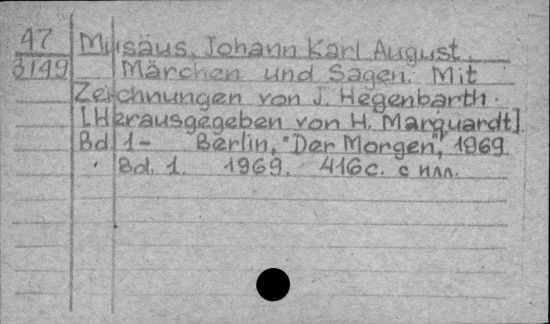 47 Musäus, Johann Karl August.
3149 Märchen und Sagen. Mit
Zeichnungen von J. Hegenbarth.
[Herausgegeben von H. Marquardt].
Bd. 1- Berlin, "Der Morgen", 1969
Bd. 1. 1969. 416 c. с илл.